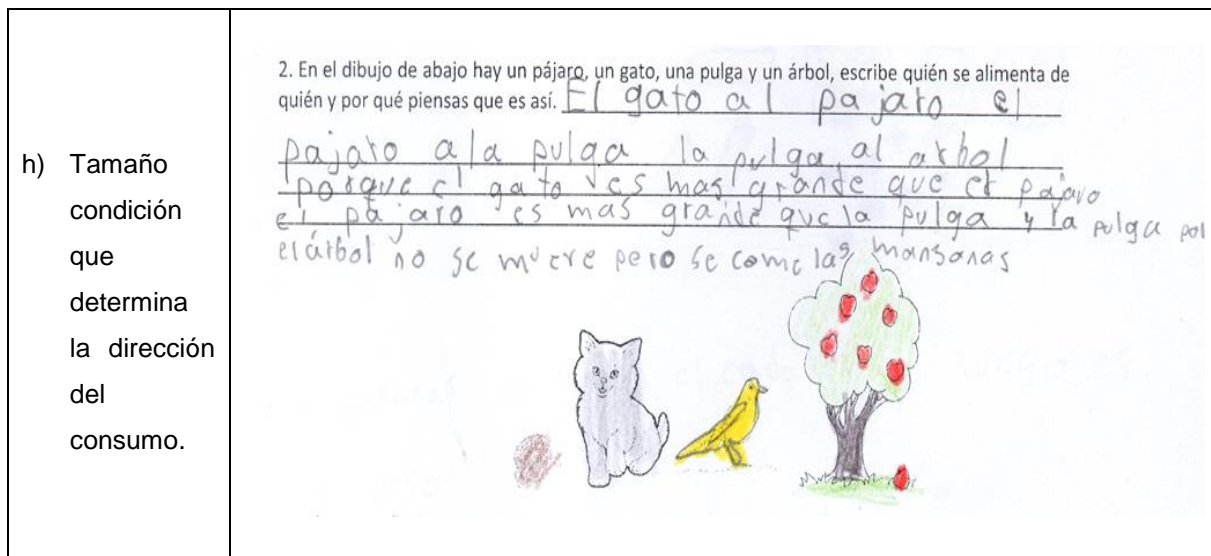 h) Tamaño
condición
que
determina
la dirección
del
consumo.
2. En el dibujo de abajo hay un pájaro, un gato, una pulga y un árbol, escribe quién se alimenta de
quién y por qué piensas que es así. El gato al pajaro el
pajaro ala pulga la pulga al arbol
porque el gato es mas grande que el pajaro
el pajaro es mas grande que la pulga y la pulga por
el árbol no se muere pero se come las mansanas